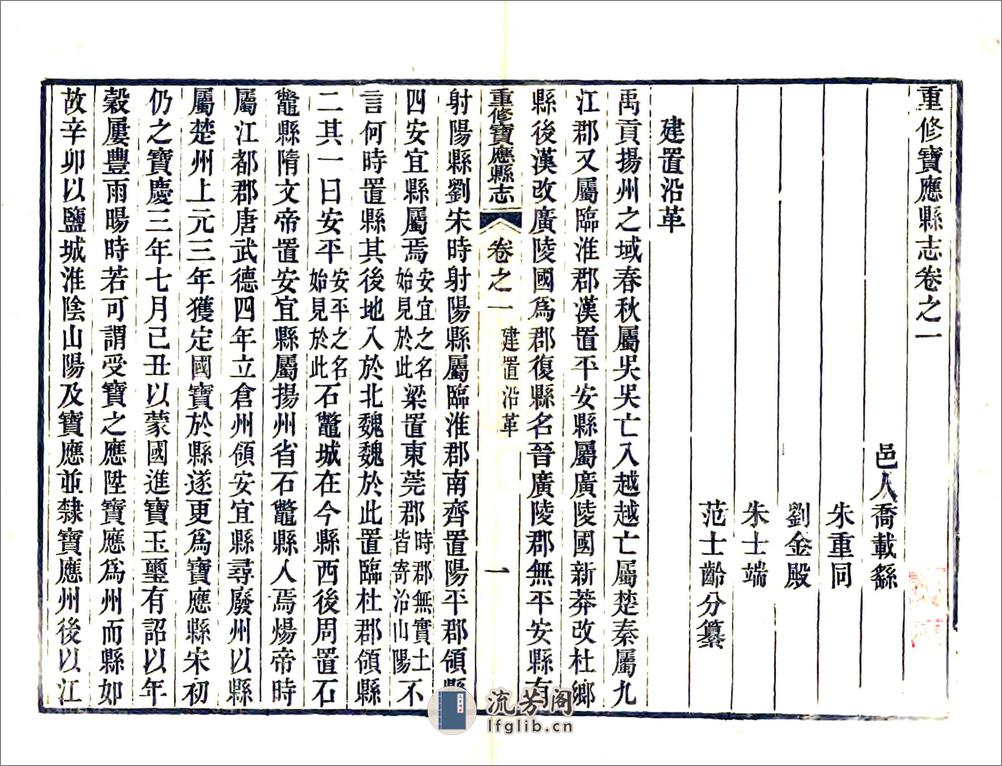 重修寶應縣志卷之一
邑人喬載繇
朱重同
劉金殿
朱士端
范士齡分纂
建置沿革
禹貢揚州之域春秋屬吳吳亡入越越亡屬楚秦屬九
江郡又屬臨淮郡漢置平安縣屬廣陵國新莽改杜鄉
縣後漢改廣陵國爲郡復縣名晉廣陵郡無平安縣有
重修寶應縣志 卷之一 建置沿革 一
射陽縣劉宋時射陽縣屬臨淮郡南齊置陽平郡領縣
四安宜縣屬焉安宜之名始見於此梁置東莞郡時郡無實土皆寄治山陽不
言何時置縣其後地入於北魏魏於此置臨杜郡領縣
二其一曰安平安平之名始見於此石鼈城在今縣西後周置石
鼈縣隋文帝置安宜縣屬揚州省石鼈縣人焉煬帝時
屬江都郡唐武德四年立倉州領安宜縣尋廢州以縣
屬楚州上元三年獲定國寶於縣遂更爲寶應縣宋初
仍之寶慶三年七月己丑以蒙國進寶玉璽有詔以年
穀屢豐雨暘時若可謂受寶之應陞寶應爲州而縣如
故辛卯以鹽城淮陰山陽及寶應並隸寶應州後以江
流芳阁
lfglib.cn